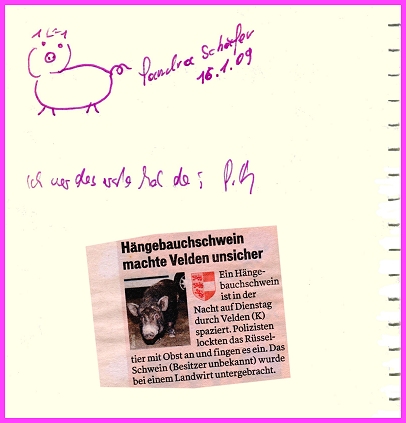 Sandra Schäfer
16.1.09
ich war das erste Mal da
Hängebauchschwein
machte Velden unsicher
Ein Hänge-
bauchschwein
ist in der
Nacht auf Dienstag
durch Velden (K)
spaziert. Polizisten
lockten das Rüssel-
tier mit Obst an und fingen es ein. Das
Schwein (Besitzer unbekannt) wurde
bei einem Landwirt untergebracht.